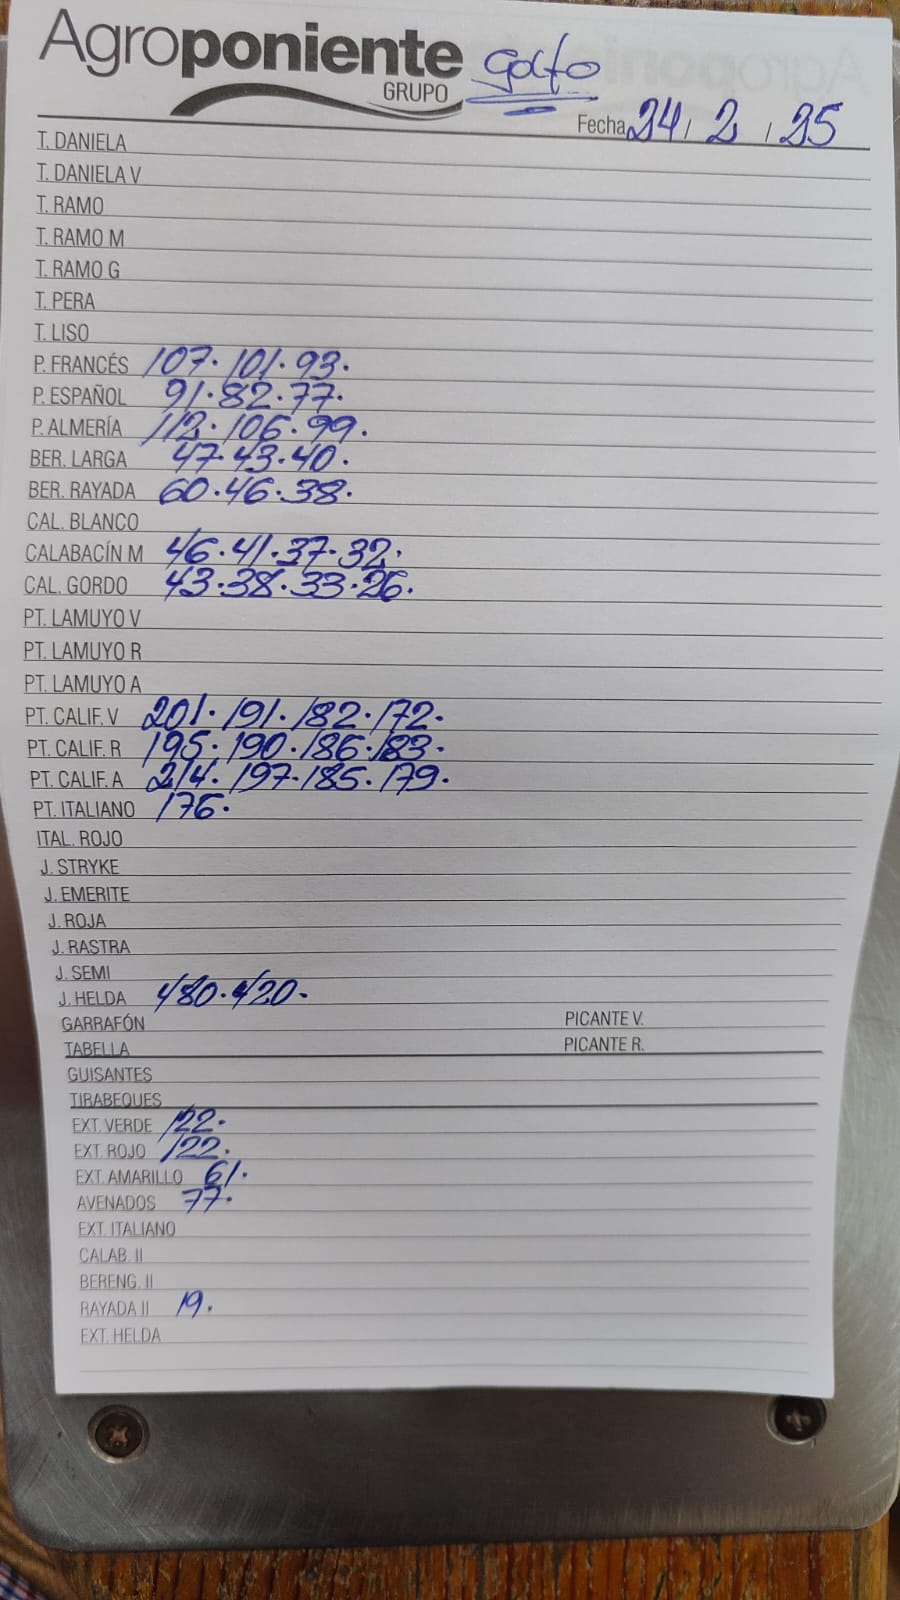 Agroponiente golfo
GRUPO
Fecha 24 / 2 / 25
T. DANIELA
T. DANIELA V
T. RAMO
T. RAMO M
T. RAMO G
T. PERA
T. LISO
P. FRANCÉS 107. 101. 93.
P. ESPAÑOL 91. 82. 77.
P. ALMERÍA 112. 106. 99.
BER. LARGA 47. 43. 40.
BER. RAYADA 60. 46. 38.
CAL. BLANCO
CALABACÍN M 46. 41. 37. 32.
CAL. GORDO 43. 38. 33. 26.
PT. LAMUYO V
PT. LAMUYO R
PT. LAMUYO A
PT. CALIF. V 201. 191. 182. 172.
PT. CALIF. R 195. 190. 186. 183.
PT. CALIF. A 214. 197. 185. 179.
PT. ITALIANO 176.
ITAL. ROJO
J. STRYKE
J. EMERITE
J. ROJA
J. RASTRA
J. SEMI
J. HELDA 480. 420.
GARRAFÓN PICANTE V.
TABELLA PICANTE R.
GUISANTES
TIRABEQUES
EXT. VERDE 122.
EXT. ROJO 122.
EXT. AMARILLO 61.
AVENADOS 77.
EXT. ITALIANO
CALAB. II
BERENG. II
RAYADA II 19.
EXT. HELDA